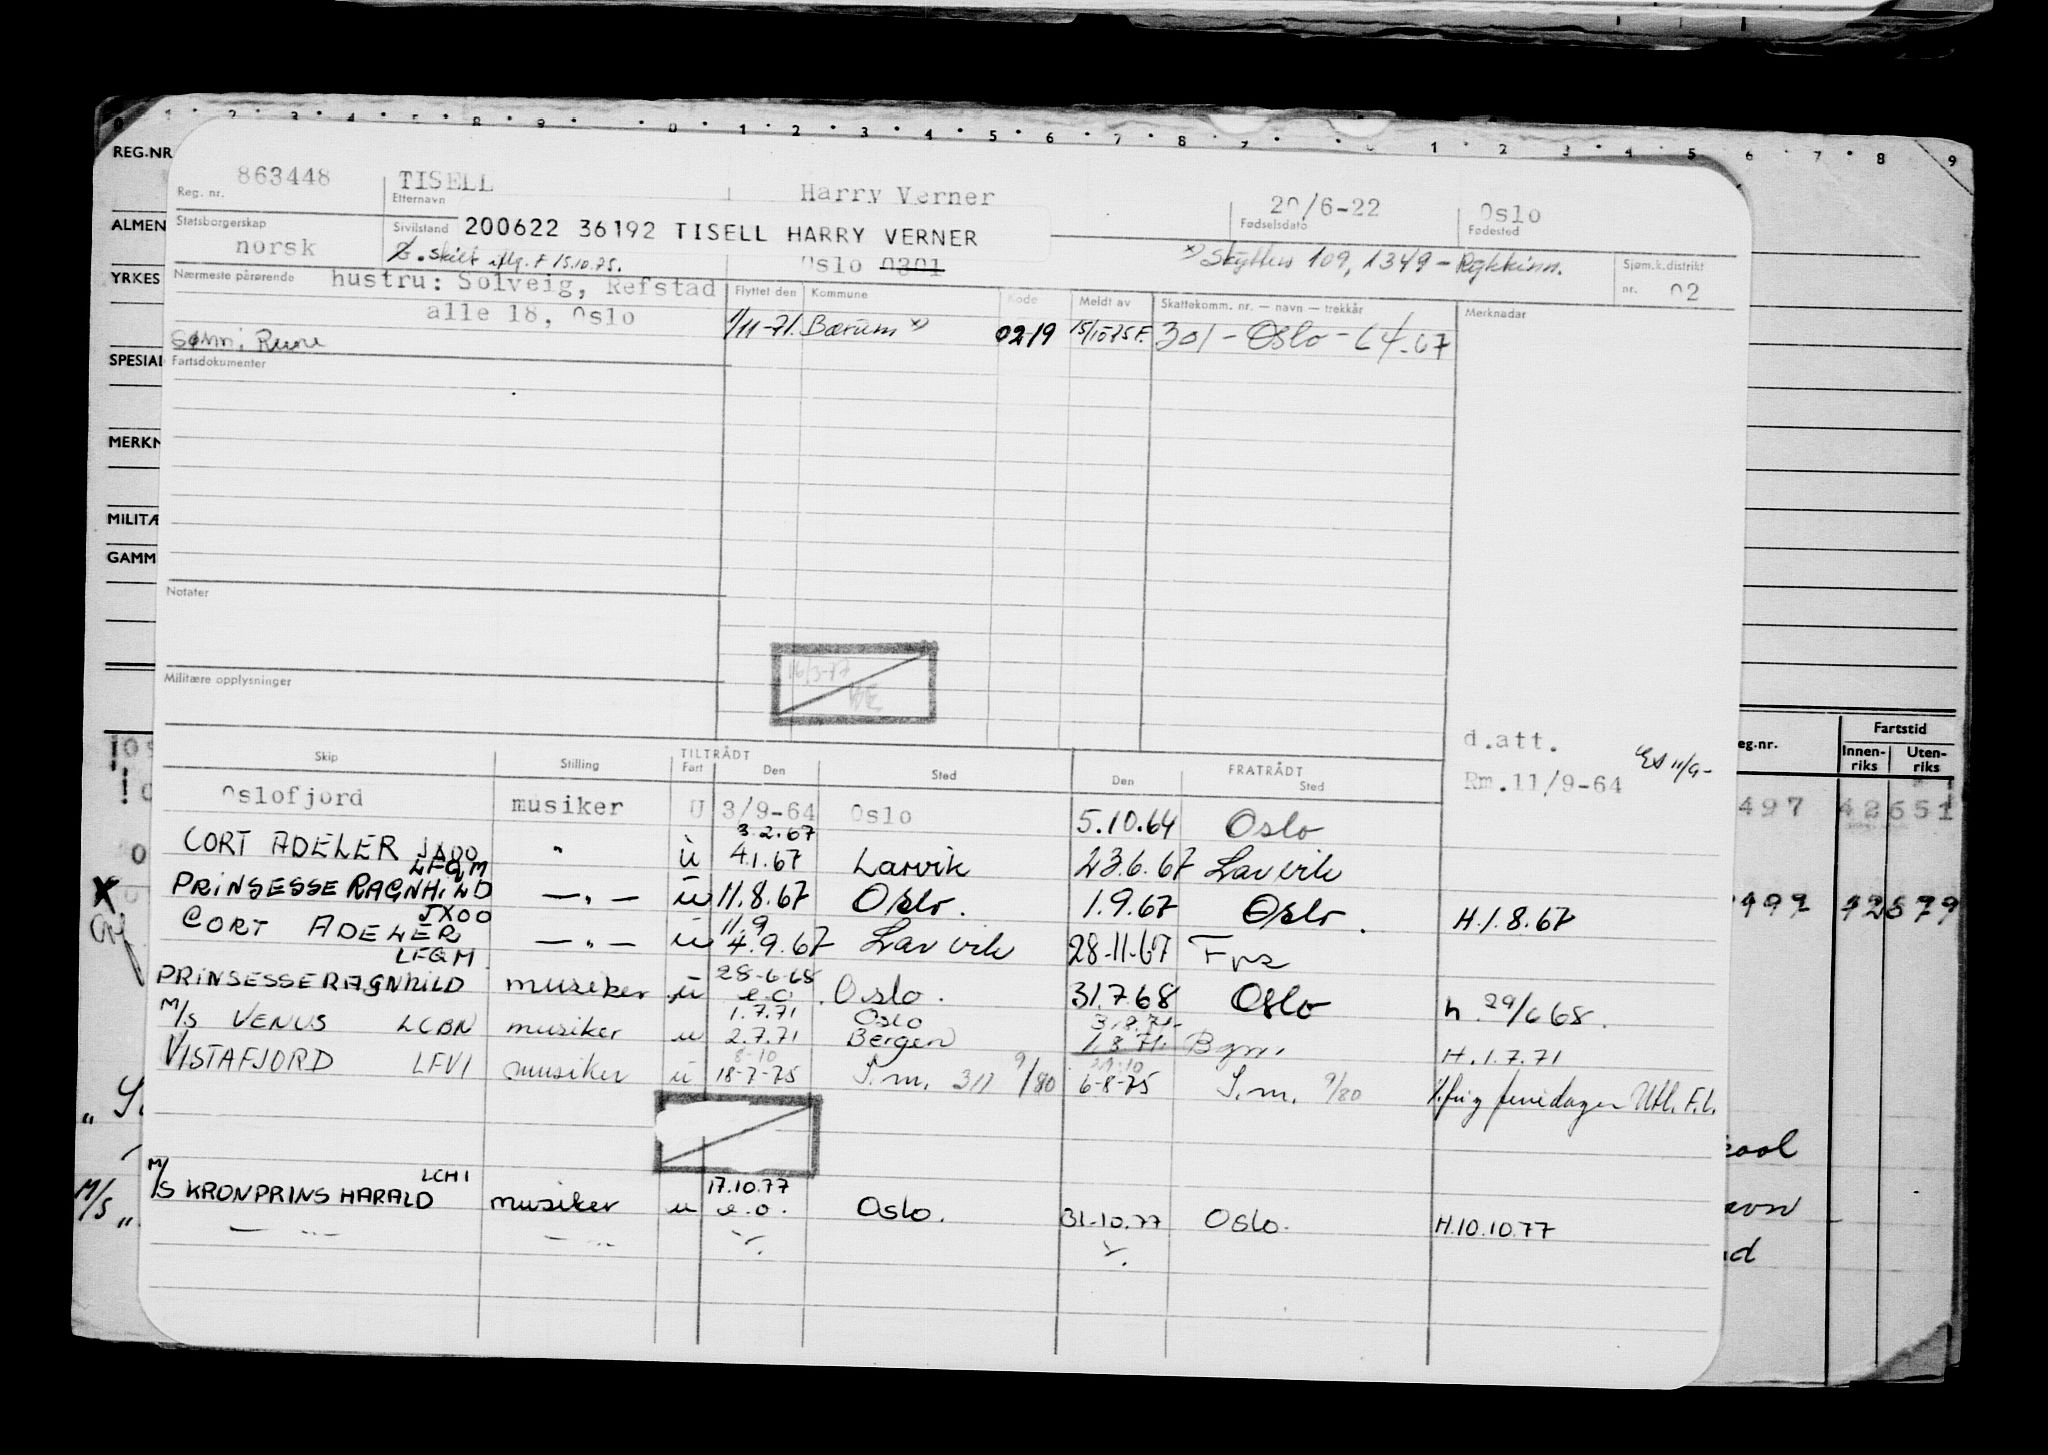 REG.NR
863448 TISELL Harry Verner 20/6-22 Oslo
Reg. nr. Etternavn Fødselsdato Fødested
ALMEN
Statsborgerskap Sivilstand 200622 36192 TISELL HARRY VERNER
norsk skilt iflg. F 15.10.75. Oslo 0301 x) Skytterv 109, 1349 - Rykkinn. Sjøm.k.distrikt
YRKES
Nærmeste pårørende hustru: Solveig, Refstad Flyttet den Kommune Kode Meldt av Skattekomm. nr. — navn — trekkår nr. 02
alle 18, Oslo 1/11-71. Bærum x) 0219 15/10-75 F. 301 - Oslo - 64-67 Merknader
Sønn: Rune
SPESIAL
Fartsdokumenter
MERKN
MILITÆ
GAMM
Notater
16/3-77
Militære opplysninger
eg.nr. Fartstid
Innen-riks Uten-riks
d.att. ES 11/9-
Skip Stilling TILTRÅDT Fart Den Sted Den FRATRÅDT Sted Rm.11/9-64
Oslofjord musiker U 3/9-64 Oslo 5.10.64 Oslo
497 42651
3.2.67
CORT ADELER JXOO " u 4.1.67 Larvik 23.6.67 Larvik
LFQM
PRINSESSE RAGNHILD —"— u 11.8.67 Oslo. 1.9.67 Oslo. H.1.8.67
JXOO 11.9
CORT ADELER —"— u 4.9.67 Larvik 28.11.67 Fra
LFQM 28-6-68
PRINSESSE RAGNHILD musiker u e.o. Oslo. 31.7.68 Oslo h. 29/6 68.
1.7.71 Oslo 31.8.71
M/S VENUS LCBN musiker u 2.7.71 Bergen 1.8.71. Bgn. H.1.7.71
8-10
VISTAFJORD LFVI musiker u 18-7-75 S.m. 311 9/80 6-8-75 S.m. 9/80 feriedager Utl. F.L.
LCHI 17.10.77
M/S KRONPRINS HARALD musiker u e.o. Oslo. 31.10.77 Oslo. H.10.10.77
— " — — " —
M/S "